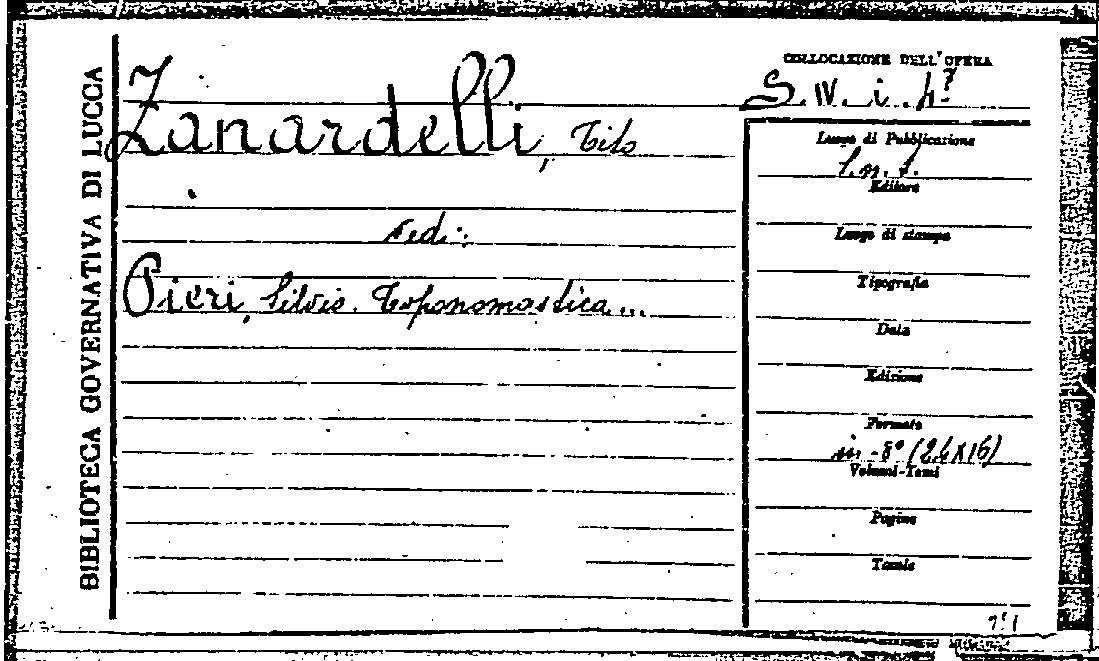 BIBLIOTECA GOVERNATIVA DI LUCCA
Zanardelli, Tito
vedi:
Pieri, Silvio. Toponomastica...
COLLOCAZIONE DELL'OPERA
S. IV. i.
Luogo di Pubblicazione
Editore
Luogo di stampa
Tipografia
Data
Edizione
Formato
in-8° (24X16)
Volumi-Tomi
Pagine
Tavole